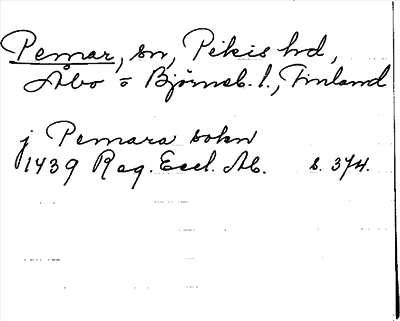 Pemar, sn, Pikis hd,
Åbo = Björneb. l., Finland
j Pemara sokn
1439 Reg. Eccl. Ab. s. 374.